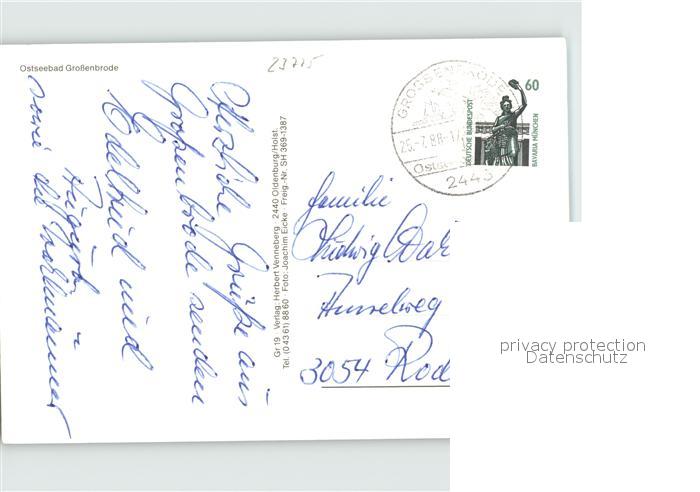 Ostseebad Großenbrode
23715
Herzliche Grüße aus
Großenbrode senden
Edeltrud und
sowie die
Gr 19 Verlag: Herbert Venneberg · 2440 Oldenburg/Holst.
Tel. (0 43 61) 88 60 · Foto: Joachim Eicke · Freig.-Nr. SH 369-1387
GROSSENBRODE
26.-7.88-17
Ostsee
2443
60
DEUTSCHE BUNDESPOST
BAVARIA MÜNCHEN
Familie
Ludwig
3054 Rod
privacy protection
Datenschutz